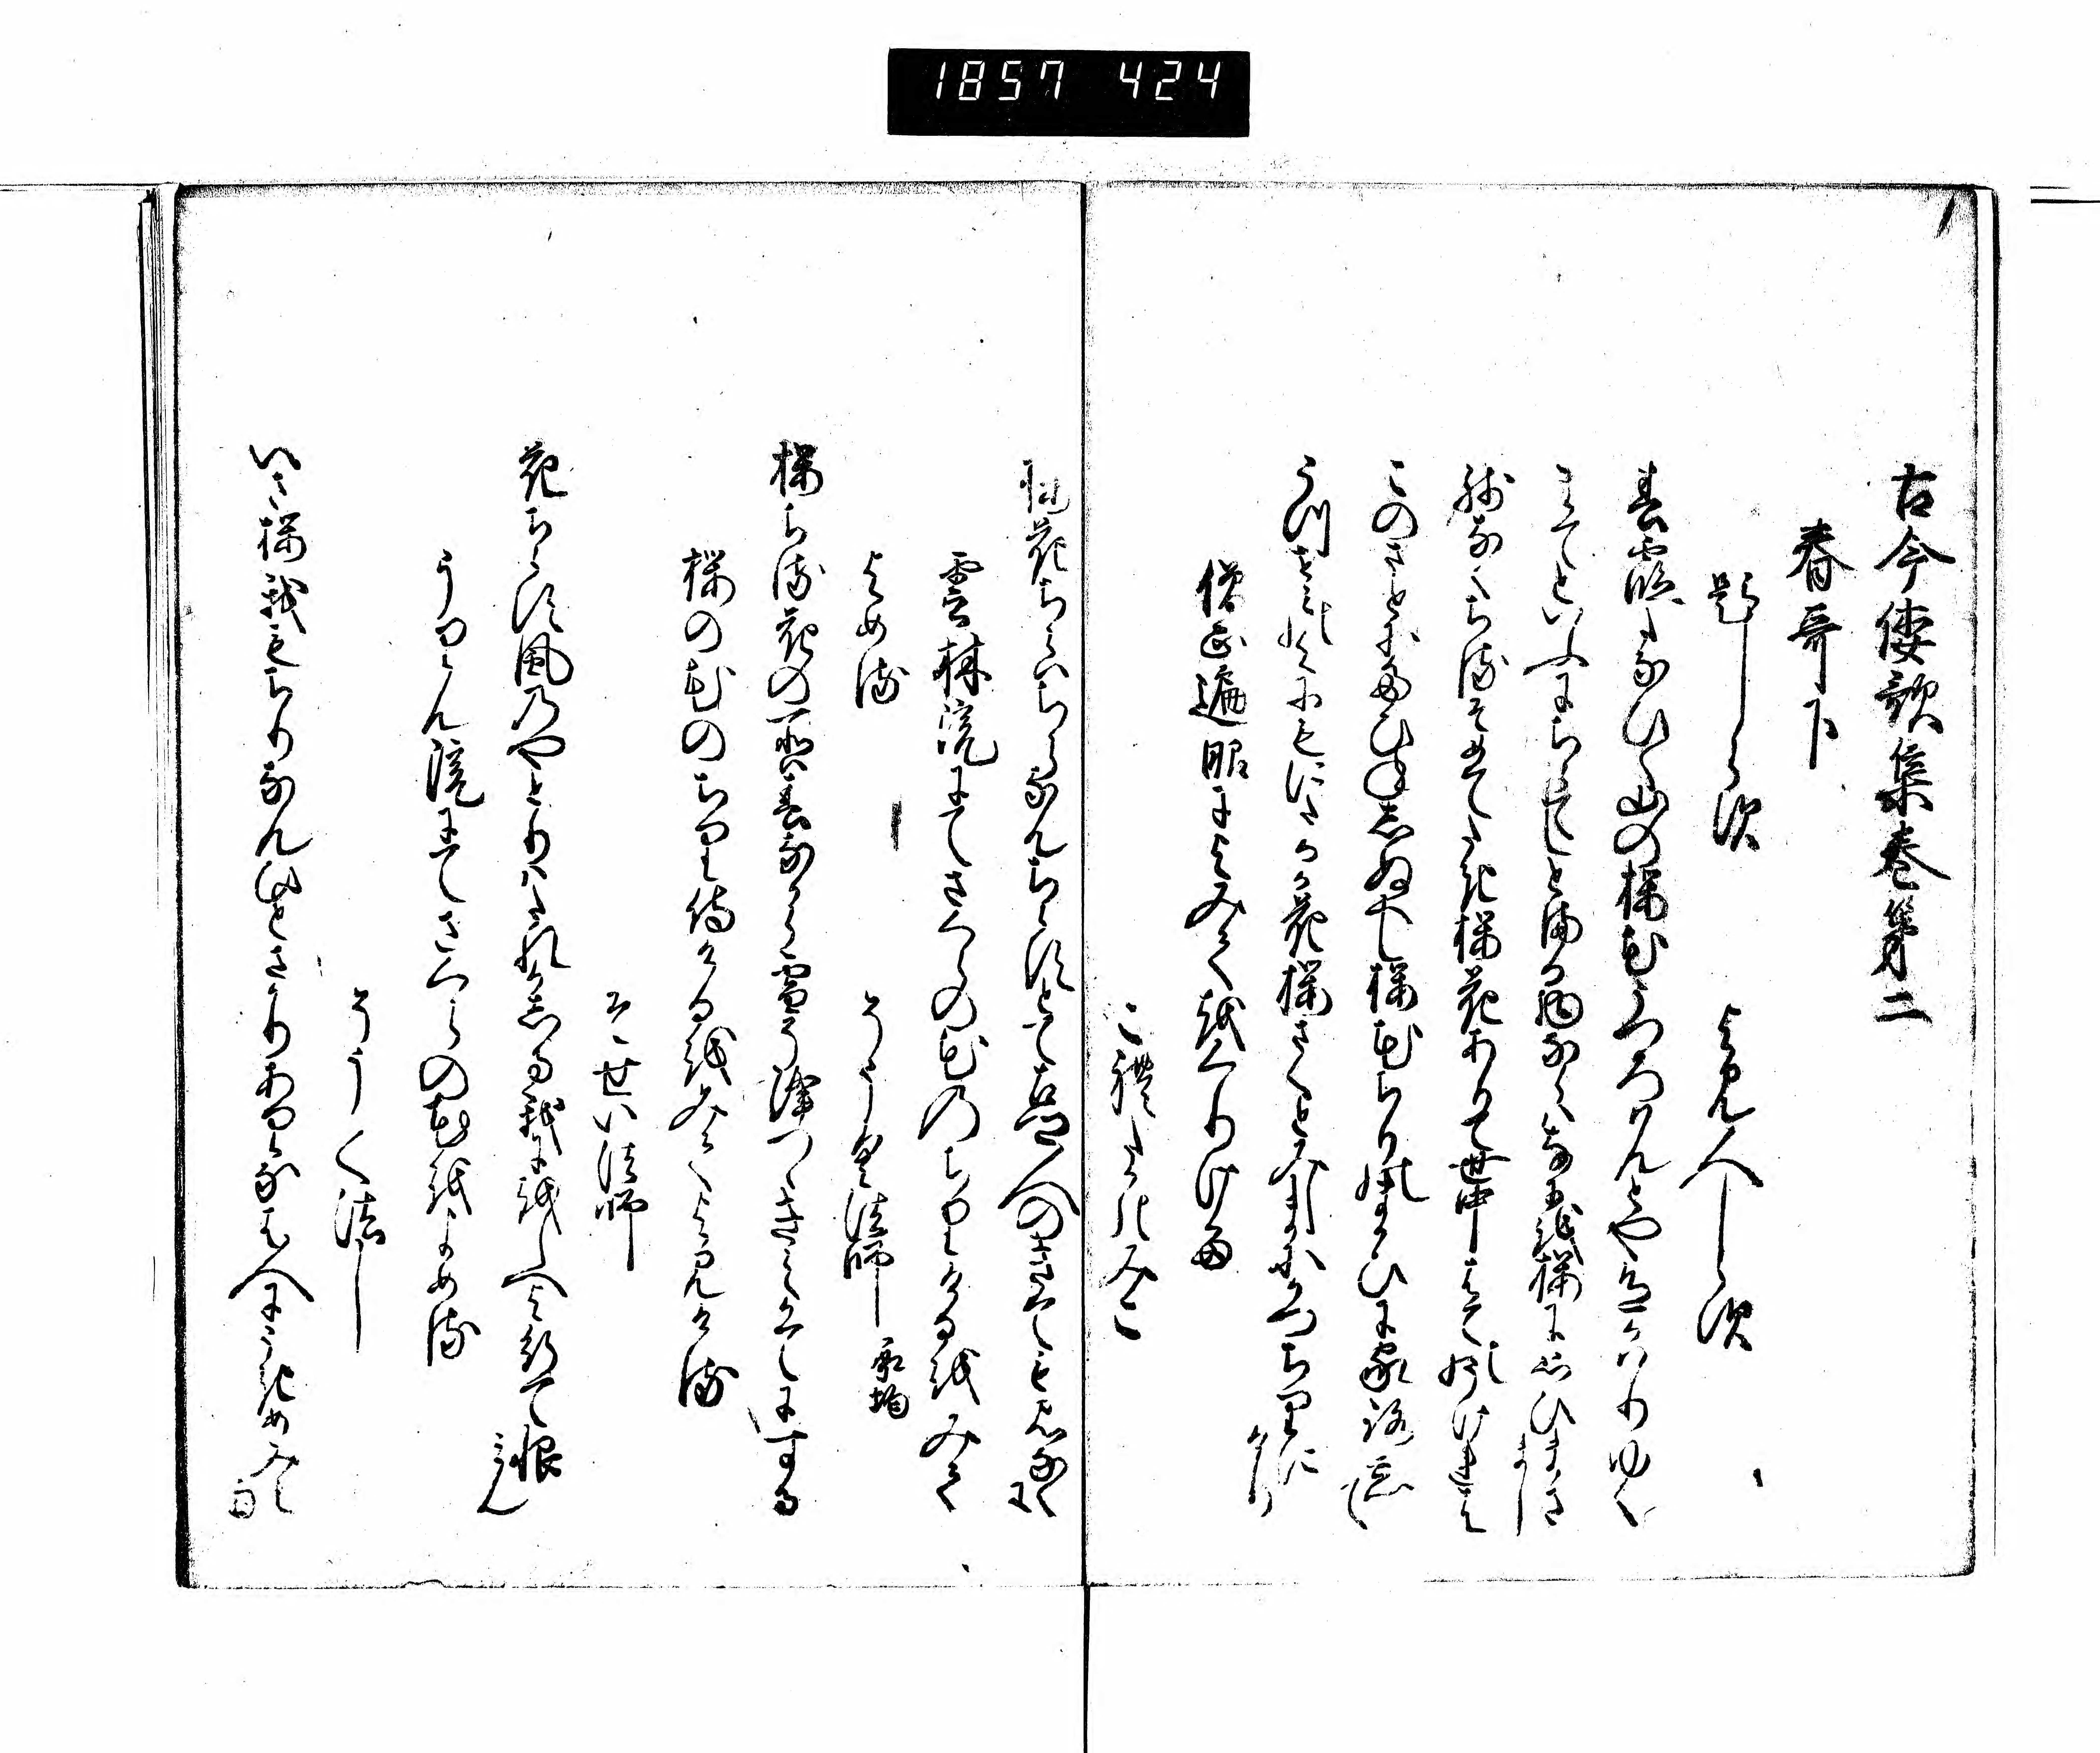 1857 424
古今倭歌集巻第二
春哥下
題しらす よみ人しらす
春霞たなひく山の桜花うつろはんとや色かはりゆく
まてといふにちらてしとまる物ならはなにを桜に思ひまさまし
残なくちるそめてたき桜花ありて世中はてのうけれは
このさとにたひねしぬへし桜花ちりのまかひに家路忘て
うつせみの世にもにたるか花桜さくとみしまにかつちりにけり
僧正遍昭によみてをくりける
これたかのみこ
桜花ちらはちらなんちらすとて古郷人のきてもみなくに
雲林院にてさくらの花のちりけるをみて
よめる そうく法師 承均
桜ちる花の所は春なから雪そ降つゝきえかてにする
桜の花のちり侍けるをみてよみける
そせい法師
花ちらす風のやとりはたれかしる我にをしへよ行て恨みん
うりん院にてさくらの花をよめる
そうく法し
いさ桜我もちりなんひとさかりありなは人にうきめみえなん